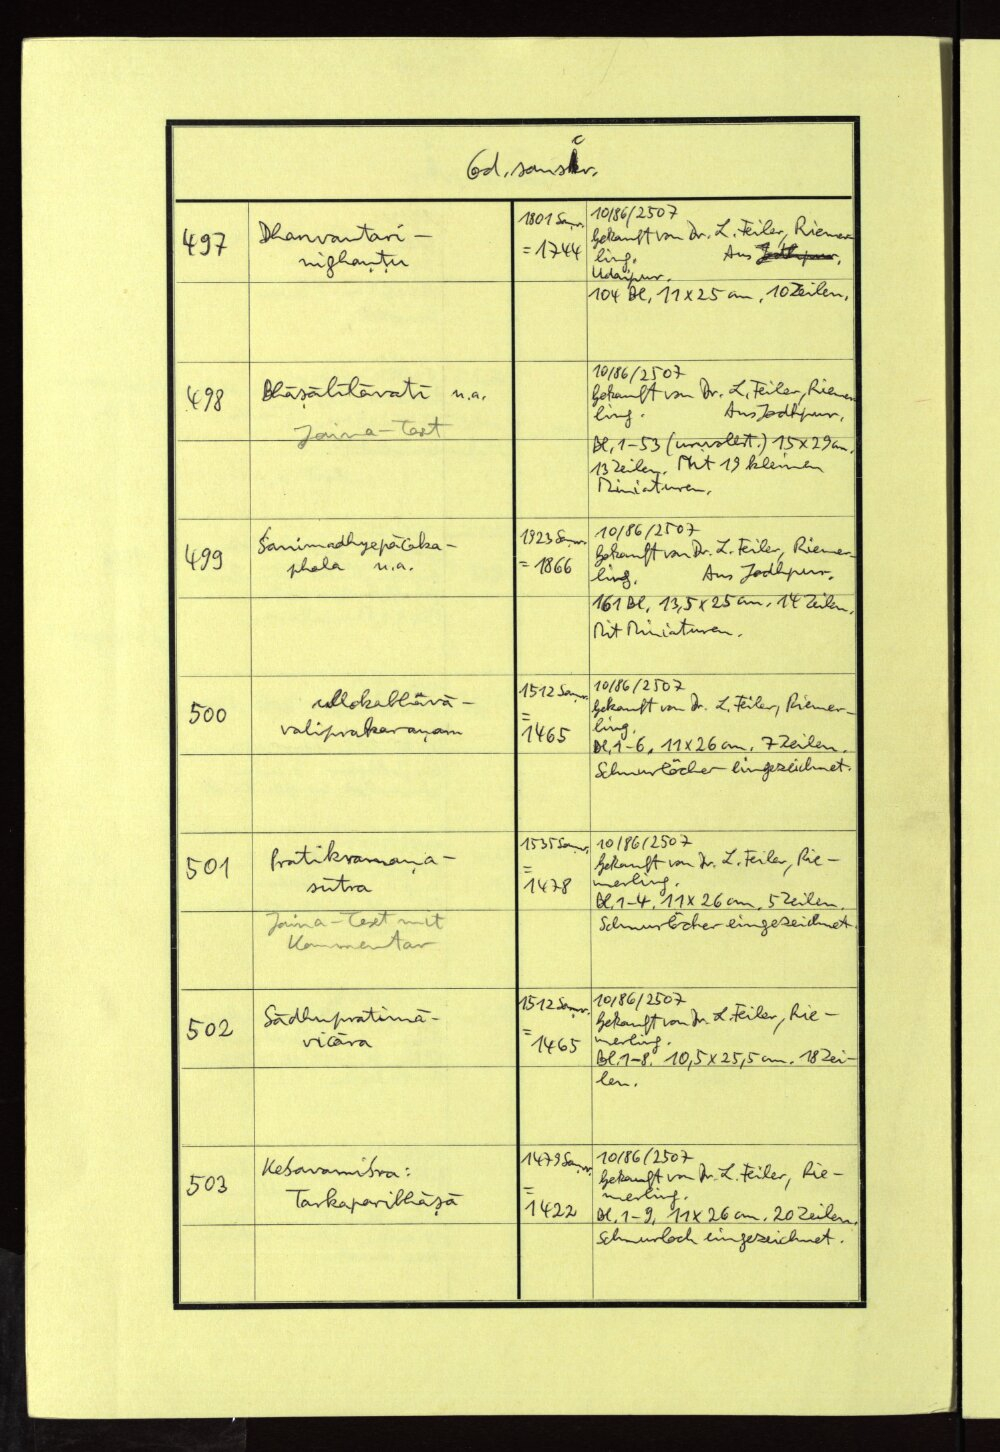 Cod. sanscr.
497
Dhanvantari-
nighaṇṭu
1801 Saṃv.
= 1744
10/86/2507
Gekauft von Dr. L. Feiler, Riemer-
ling. Aus Jodhpur.
Udaipur.
104 Bl. 11 x 25 cm. 10 Zeilen.
498
Bhāṣālīlāvatī u.a.
Jaina-Text
10/86/2507
Gekauft von Dr. L. Feiler, Riemer-
ling. Aus Jodhpur.
Bl. 1-53 (unvollst.) 15 x 29 cm.
13 Zeilen. Mit 19 kleinen
Miniaturen.
499
Śanimadhyepātaka-
phala u.a.
1923 Saṃv.
= 1866
10/86/2507
Gekauft von Dr. L. Feiler, Riemer-
ling. Aus Jodhpur.
161 Bl. 13,5 x 25 cm. 14 Zeilen.
Mit Miniaturen.
500
valiprakaraṇam
1512 Saṃv.
=
1465
10/86/2507
Gekauft von Dr. L. Feiler, Riemer-
ling.
Bl. 1-6. 11 x 26 cm. 7 Zeilen.
Schnurlöcher eingezeichnet.
501
Pratikramaṇa-
sūtra
Jaina-Text mit
Kommentar
1535 Saṃv.
=
1478
10/86/2507
Gekauft von Dr. L. Feiler, Rie-
merling.
Bl. 1-4. 11 x 26 cm. 5 Zeilen.
Schnurlöcher eingezeichnet.
502
Sādhupratimā-
vicāra
1512 Saṃv.
=
1465
10/86/2507
Gekauft von Dr. L. Feiler, Rie-
merling.
Bl. 1-8. 10,5 x 25,5 cm. 18 Zei-
len.
503
Keśavamiśra:
Tarkaparibhāṣā
1479 Saṃv.
=
1422
10/86/2507
Gekauft von Dr. L. Feiler, Rie-
merling.
Bl. 1-9. 11 x 26 cm. 20 Zeilen.
Schnurloch eingezeichnet.